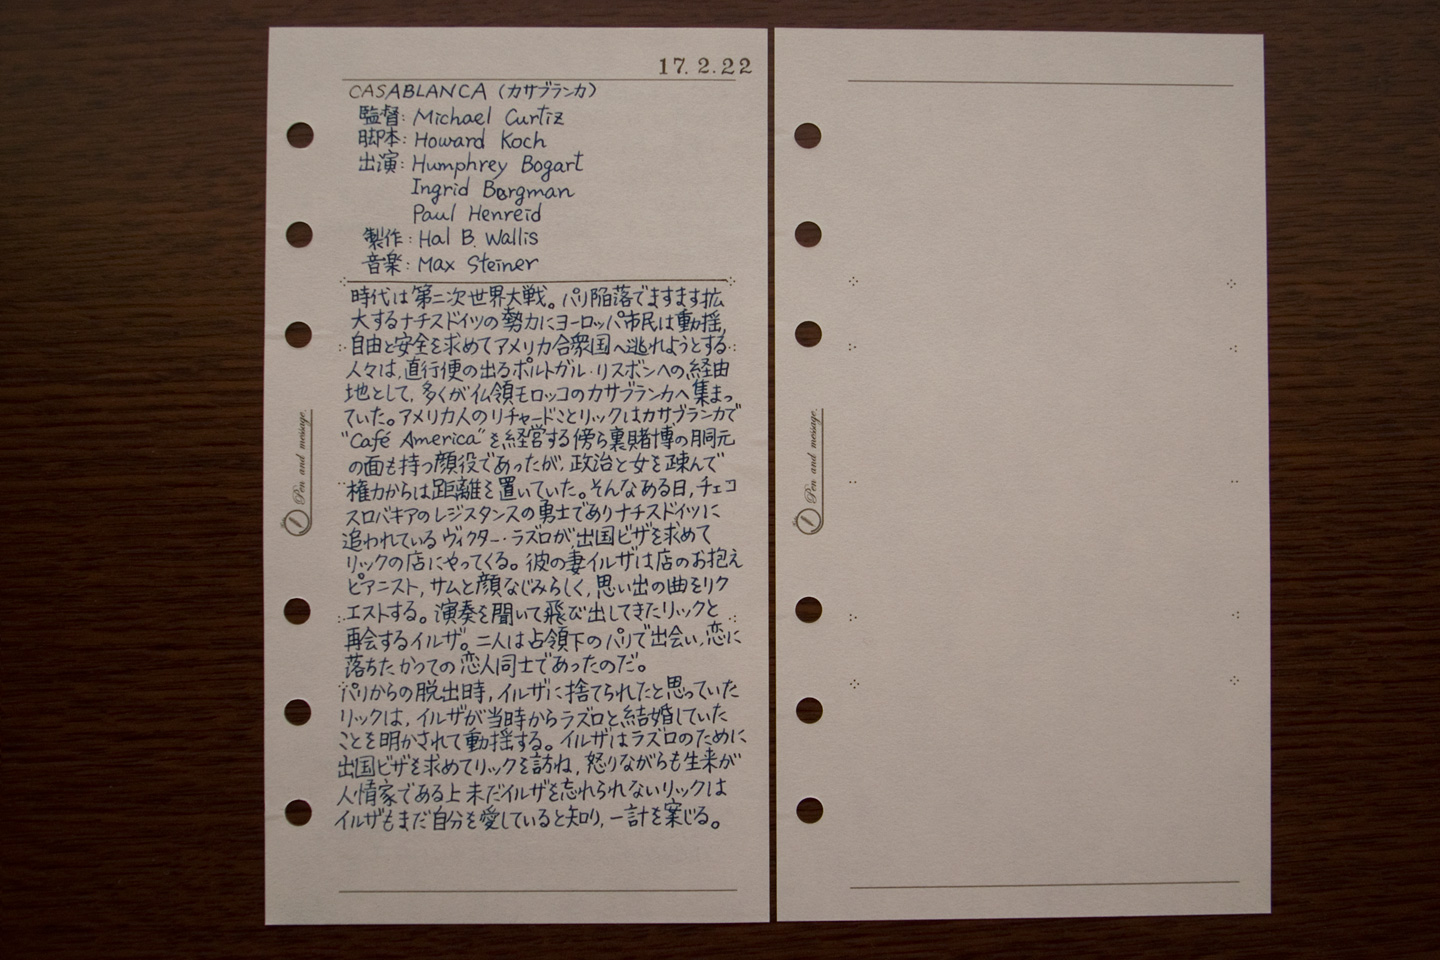 17.2.22
CASABLANCA (カサブランカ)
監督: Michael Curtiz
脚本: Howard Koch
出演: Humphrey Bogart
Ingrid Bergman
Paul Henreid
製作: Hal B. Wallis
音楽: Max Steiner
時代は第二次世界大戦。パリ陥落でますます拡
大するナチスドイツの勢力にヨーロッパ市民は動揺,
自由と安全を求めてアメリカ合衆国へ逃れようとする
人々は,直行便の出るポルトガル·リスボンへの,経由
地として,多くが仏領モロッコのカサブランカへ集まっ
ていた。アメリカ人のリチャードことリックはカサブランカで
"Café America"を経営する傍ら裏賭博の胴元
の面も持つ顔役であったが,政治と女を疎んで
権力からは距離を置いていた。そんなある日,チェコ
スロバキアのレジスタンスの勇士でありナチスドイツに
追われているヴィクター·ラズロが出国ビザを求めて
リックの店にやってくる。彼の妻イルザは店のお抱え
ピアニスト,サムと顔なじみらしく,思い出の曲をリク
エストする。演奏を聞いて飛び出してきたリックと
再会するイルザ。二人は占領下のパリで出会い,恋に
落ちたかつての恋人同士であったのだ。
パリからの脱出時,イルザに捨てられたと思っていた
リックは,イルザが当時からラズロと結婚していた
ことを明かされて動揺する。イルザはラズロのために
出国ビザを求めてリックを訪ね,怒りながらも生来が
人情家である上未だイルザを忘れられないリックは
イルザもまだ自分を愛していると知り,一計を案じる。
Pen and message.
Pen and message.